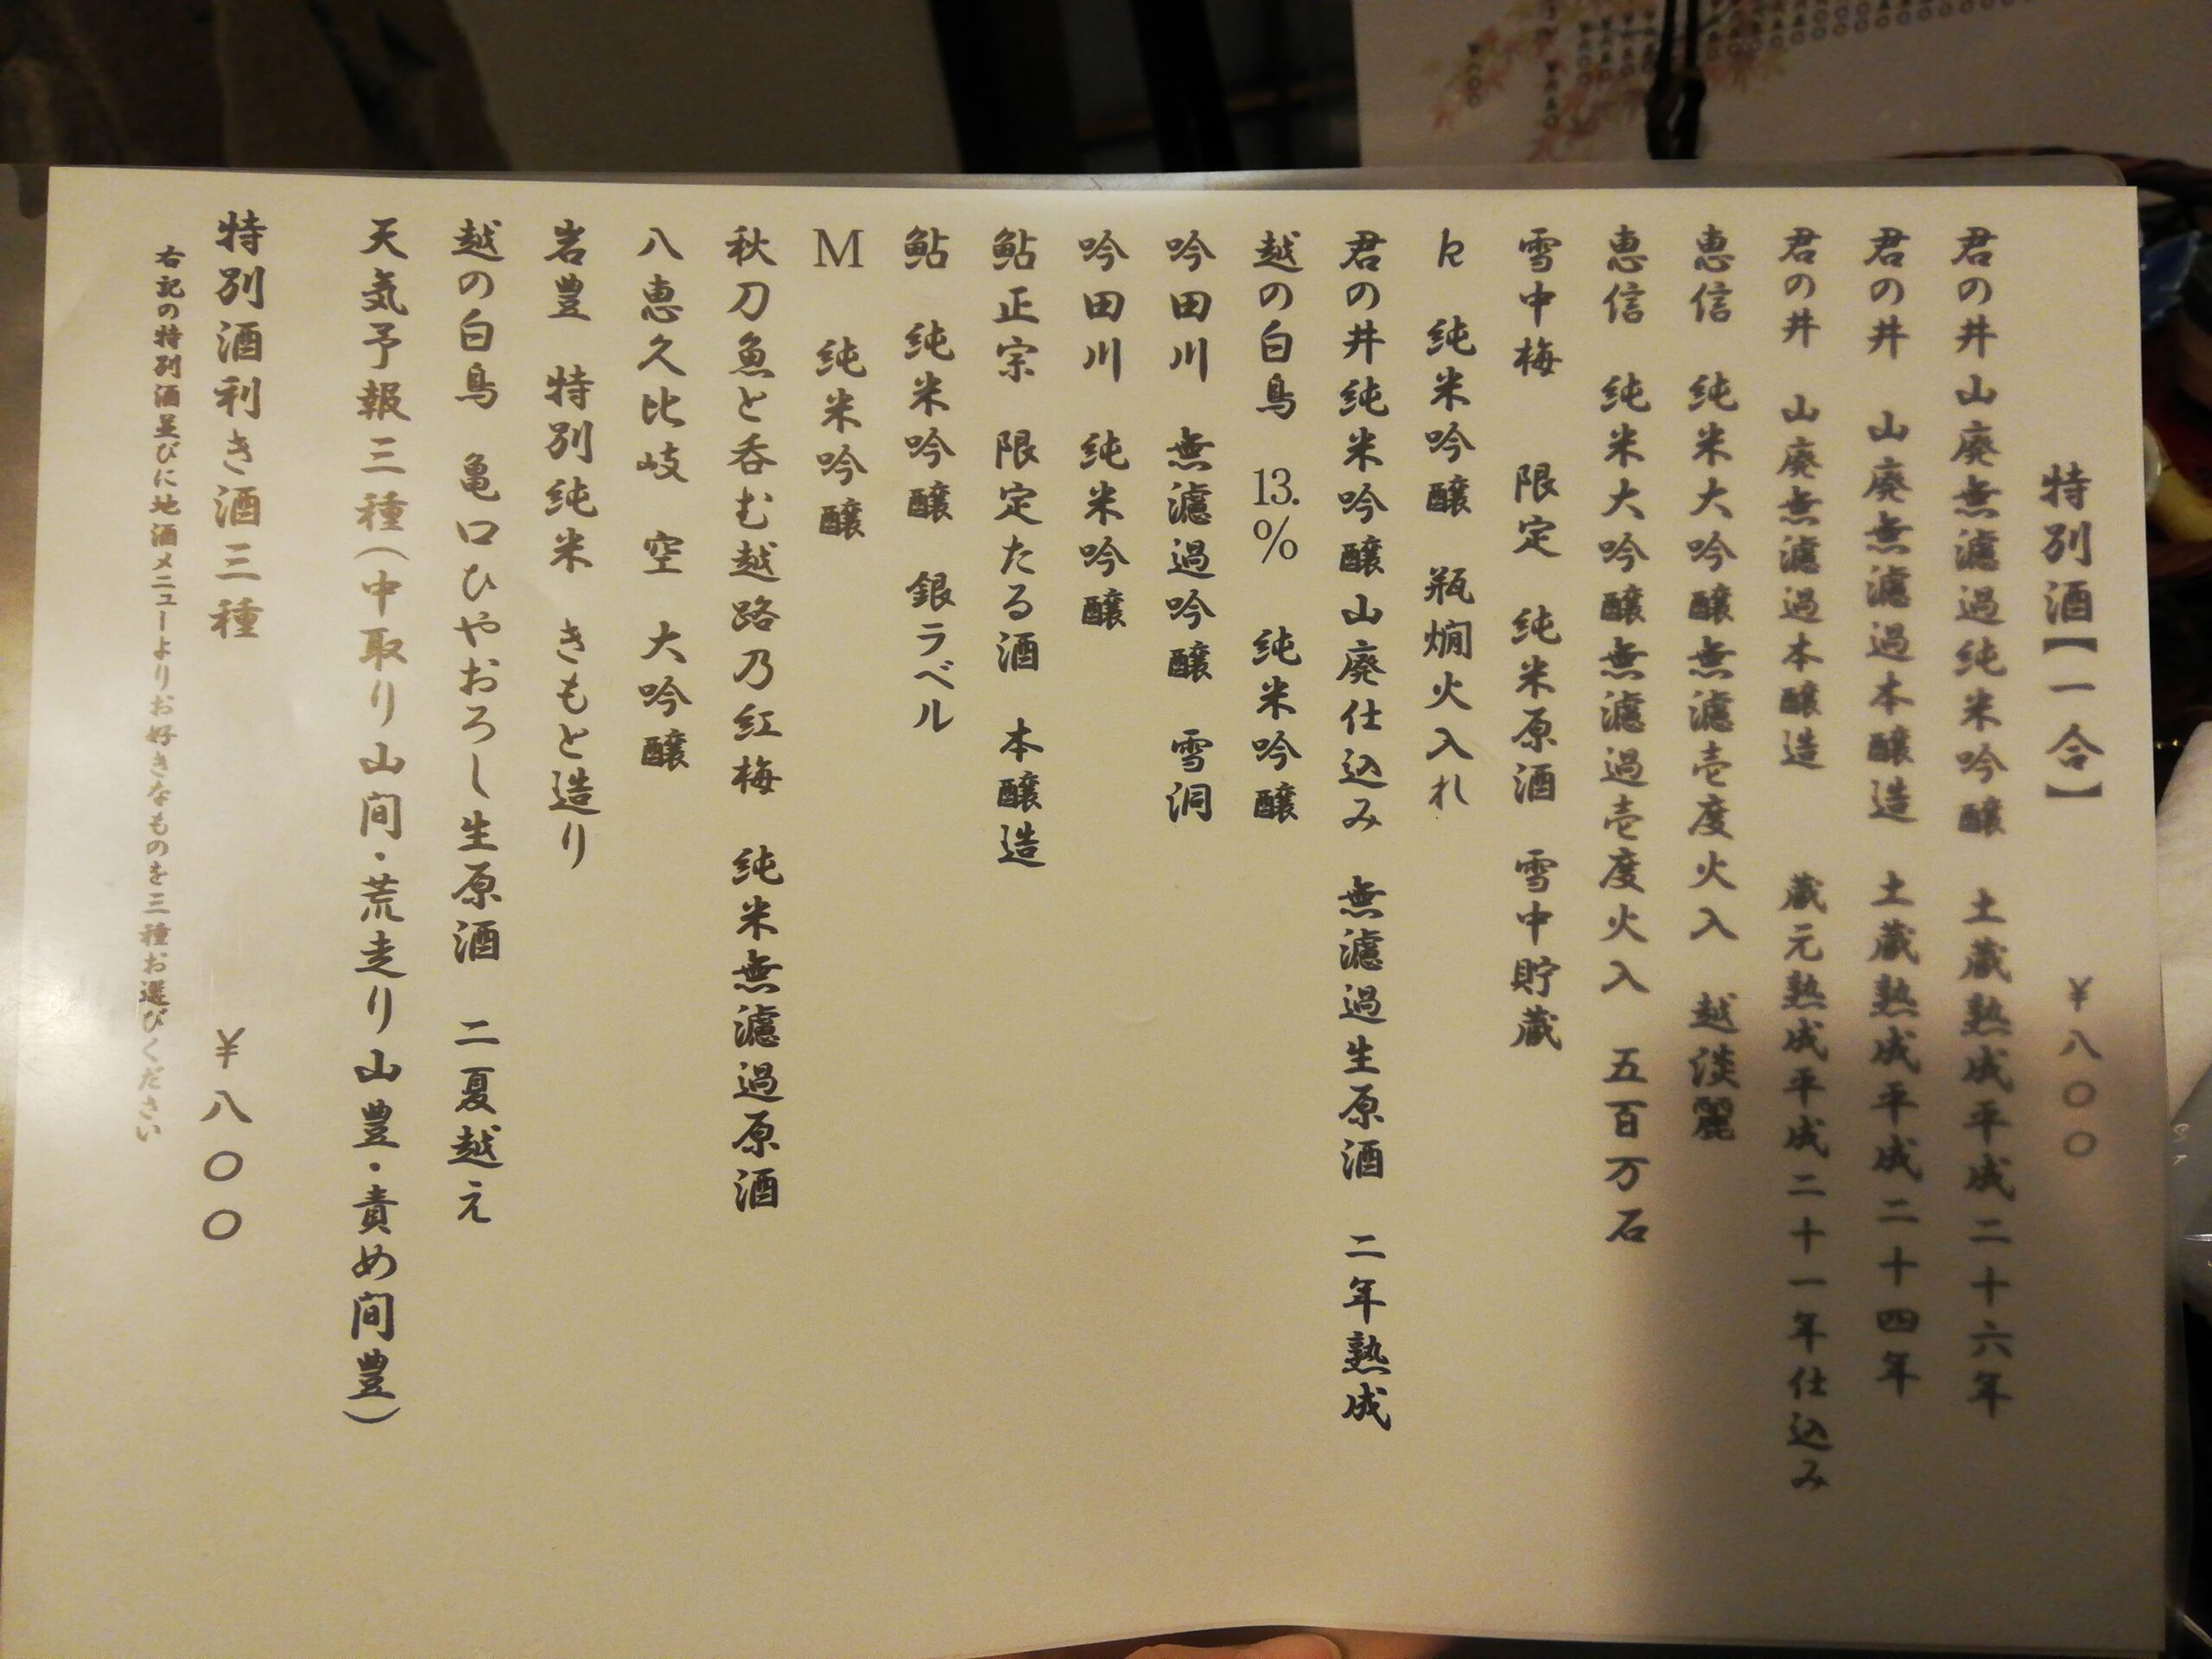 特別酒【一合】　￥八〇〇
君の井山廃無濾過純米吟醸　土蔵熟成平成二十六年
君の井　山廃無濾過本醸造　土蔵熟成平成二十四年
君の井　山廃無濾過本醸造　蔵元熟成平成二十一年仕込み
恵信　純米大吟醸無濾過壱度火入　越淡麗
恵信　純米大吟醸無濾過壱度火入　五百万石
雪中梅　限定　純米原酒　雪中貯蔵
k　純米吟醸　瓶燗火入れ
君の井純米吟醸山廃仕込み　無濾過生原酒　二年熟成
越の白鳥　13.%　純米吟醸
吟田川　無濾過吟醸　雪洞
吟田川　純米吟醸
鮎正宗　限定たる酒　本醸造
鮎　純米吟醸　銀ラベル
M　純米吟醸
秋刀魚と呑む越路乃紅梅　純米無濾過原酒
八恵久比岐　空　大吟醸
岩豊　特別純米　きもと造り
越の白鳥　亀口ひやおろし生原酒　二夏越え
天気予報三種(中取り山間・荒走り山豊・責め間豊)
特別酒利き酒三種　￥八〇〇
右記の特別酒並びに地酒メニューよりお好きなものを三種お選びください